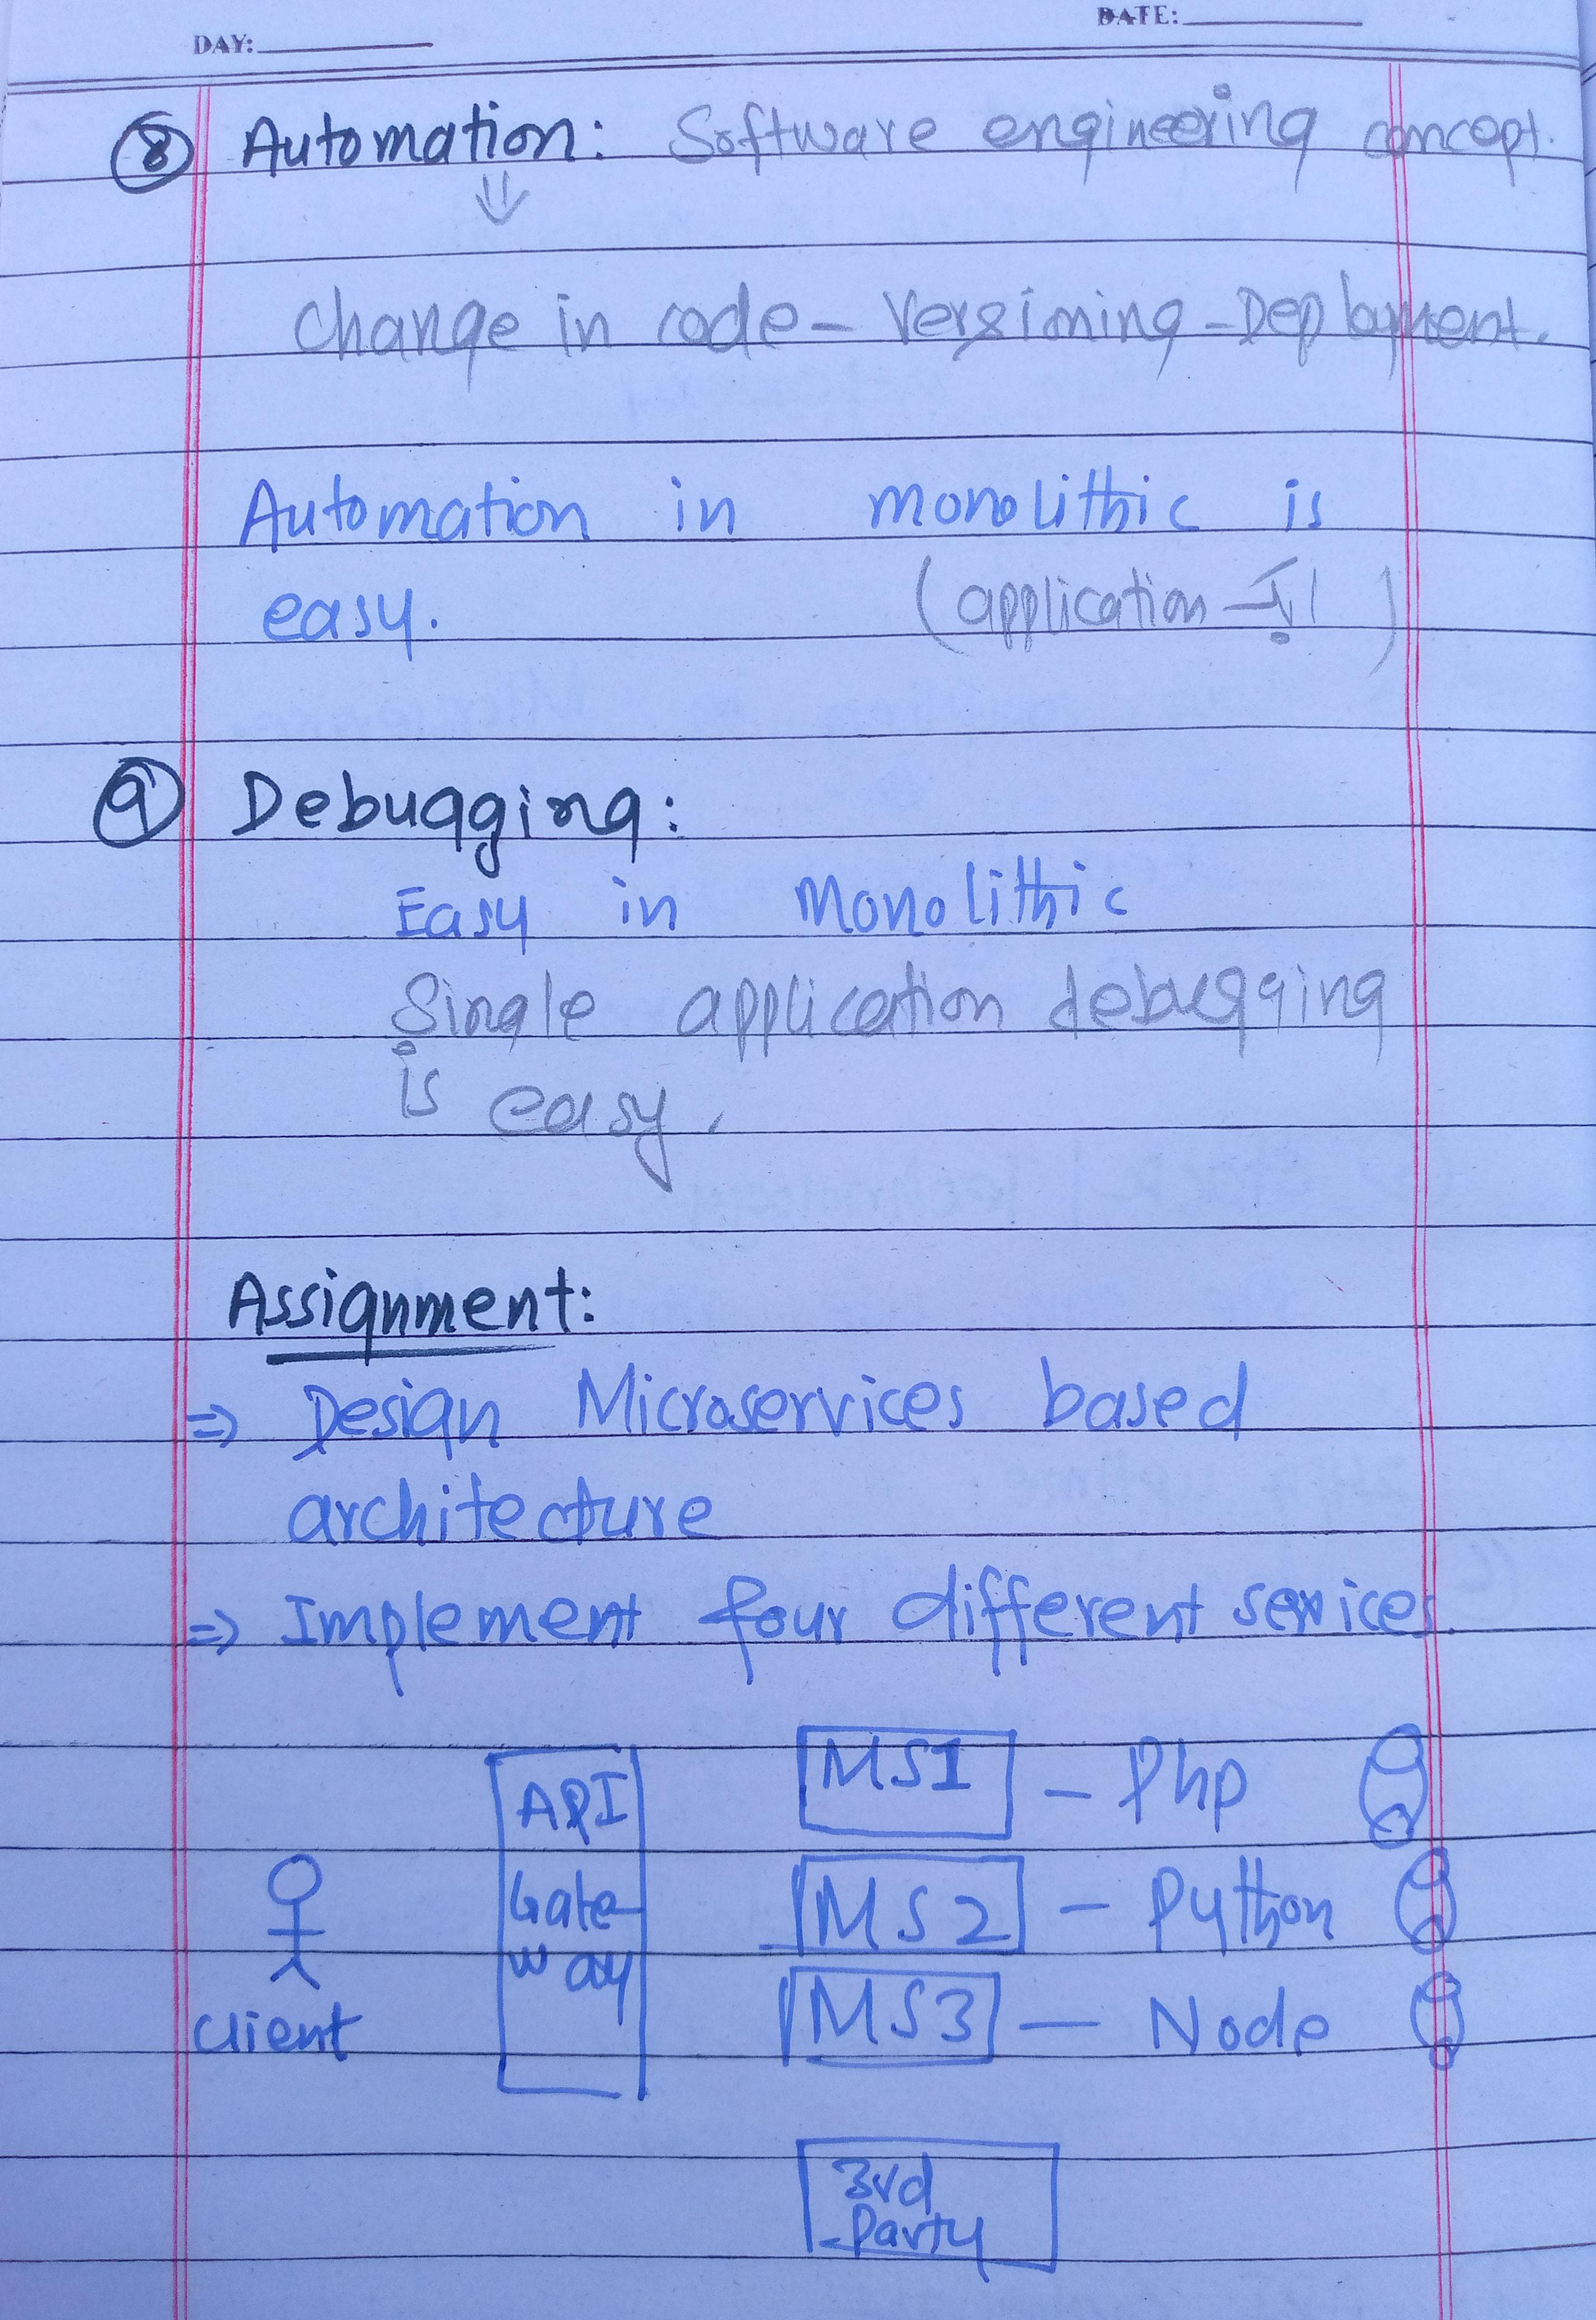 DAY:
DATE:
8 Automation: Software engineering concept.
⇓
Change in code - Versiming - Deployment.
Automation in monolithic is
easy. (application ایک)
9 Debugging:
Easy in Monolithic
Single application debugging
is easy.
Assignment:
⇒ Design Microservices based
architecture
⇒ Implement four different services.
API
Gate-
way
Client
MS1 - Php
MS2 - Python
MS3 - Node
3rd
Party